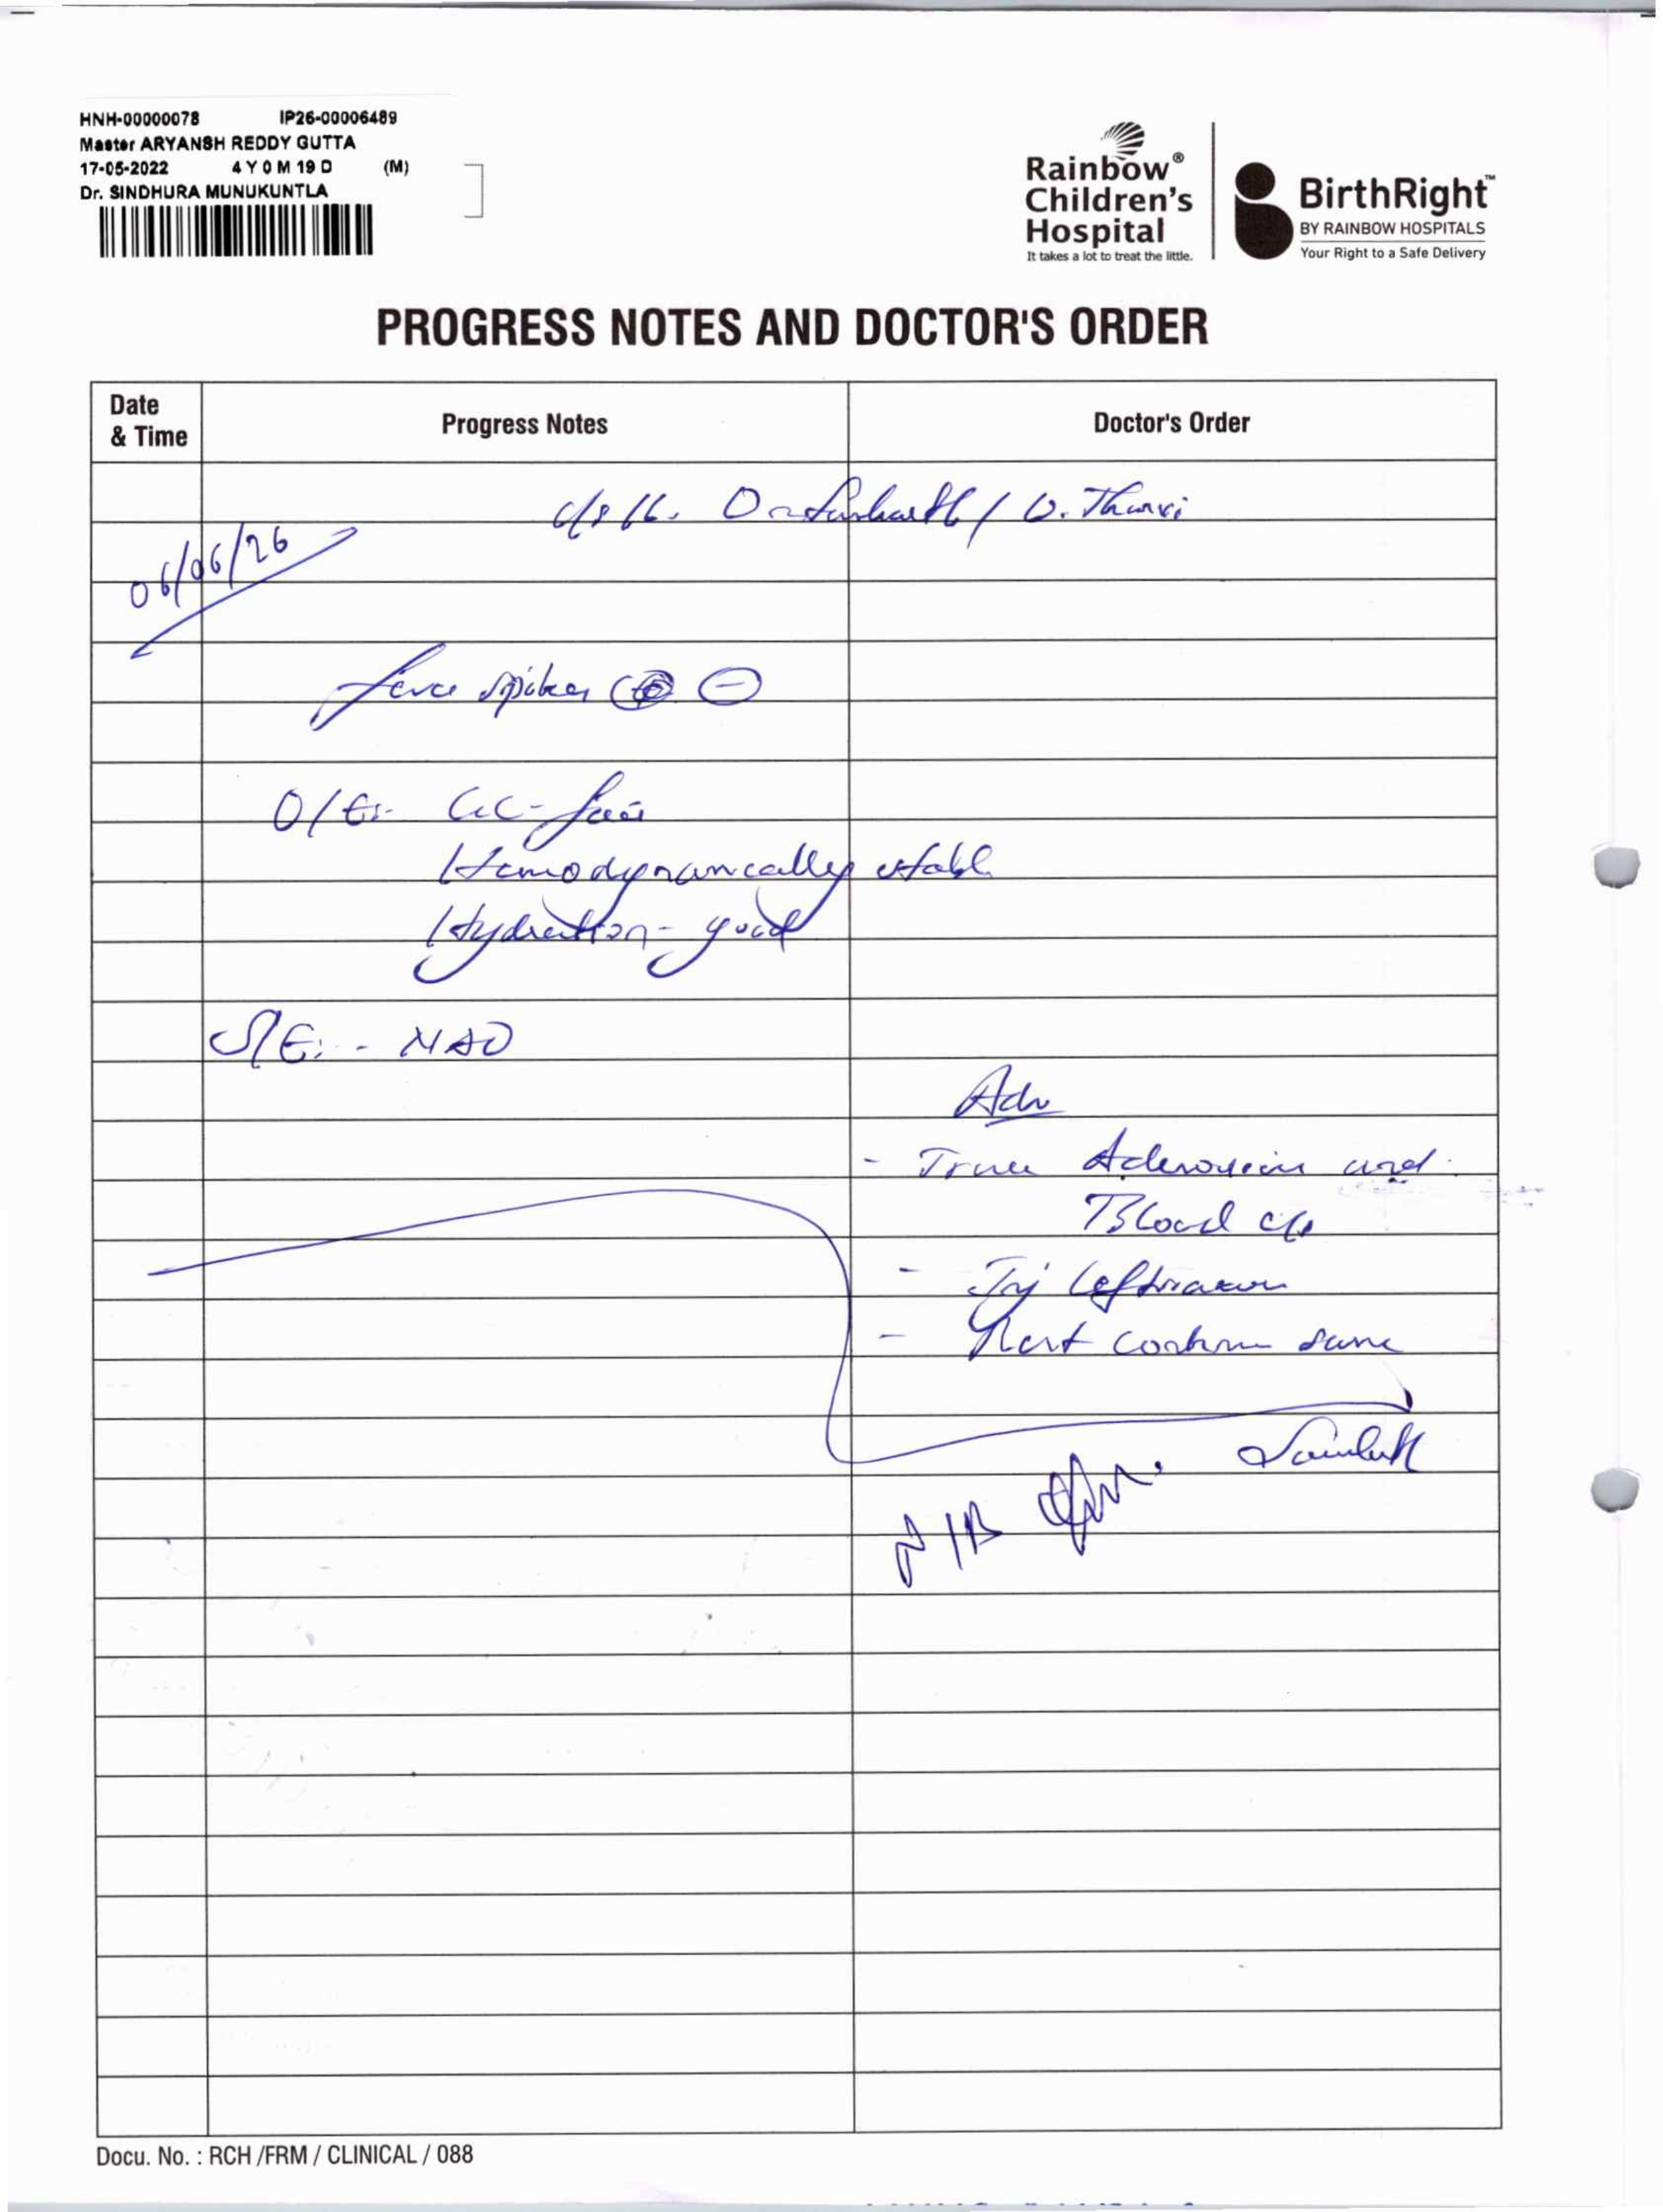 HNH-00000078 IP26-00006489
Master ARYANSH REDDY GUTTA
17-05-2022 4 Y 0 M 19 D (M)
Dr. SINDHURA MUNUKUNTLA
Rainbow®
Children's
Hospital
It takes a lot to treat the little.
BirthRight™
BY RAINBOW HOSPITALS
Your Right to a Safe Delivery
PROGRESS NOTES AND DOCTOR'S ORDER
Date
& Time
Progress Notes
Doctor's Order
06/06/26
spikes ⊖
O/E:- GC- fair
Hemodynamically stabl
Hydration- good
S/E: - NAD
Adv
- Trace and
Blood c/s
- Inj Ceftriaxon
- same
Docu. No. : RCH /FRM / CLINICAL / 088